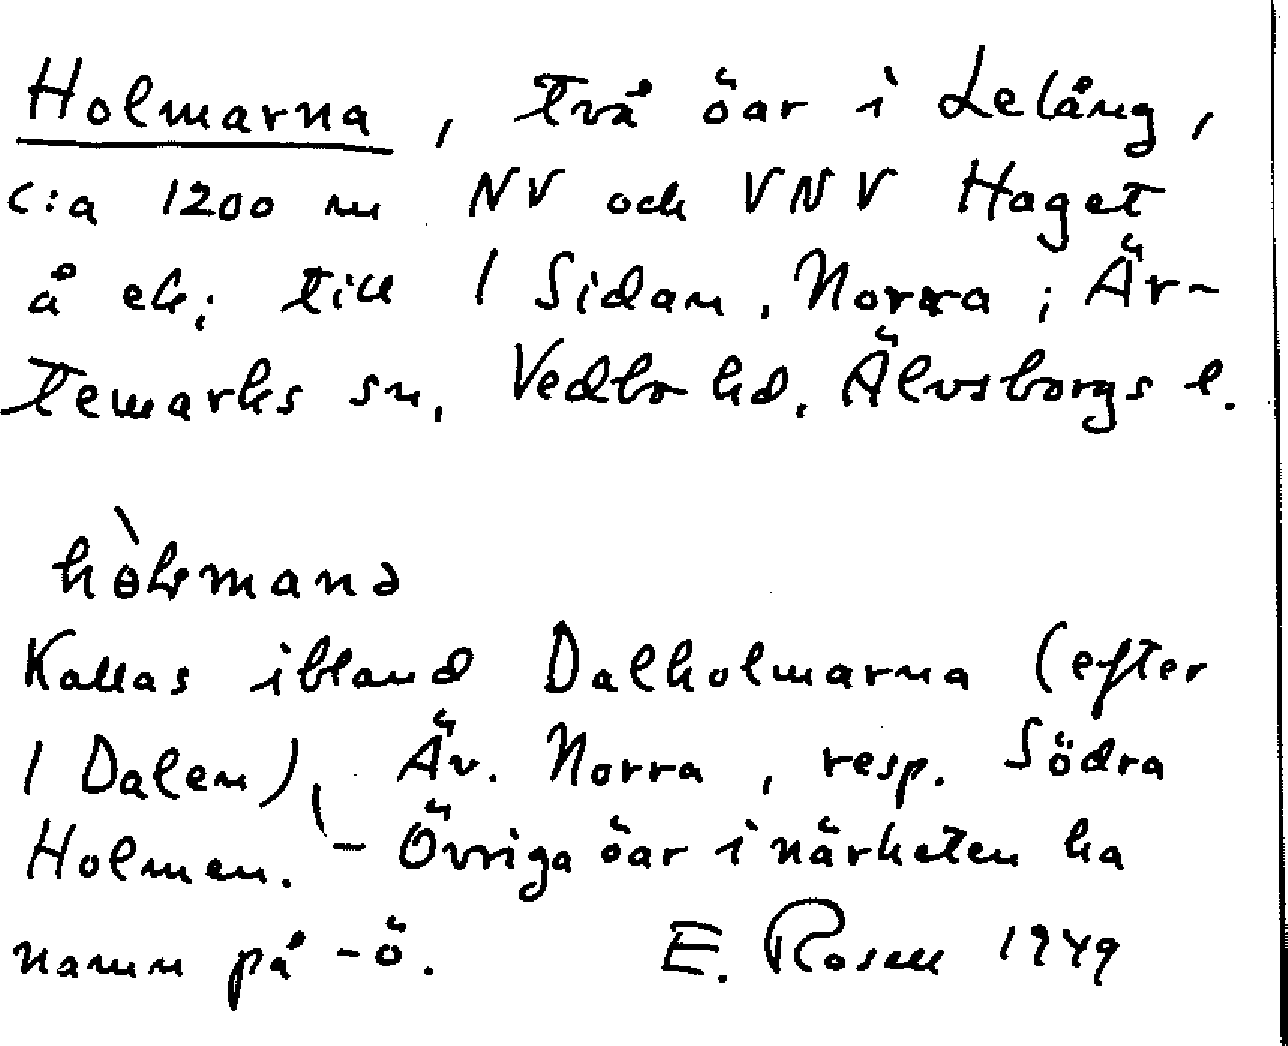 Holmarna, två öar i Lelång,
c:a 1200 m NV och VNV Haget
å ek; till 1 Sidan, Norra; Är-
temarks sn, Vedbo hd, Älvsborgs l.
hòlmanə
Kallas ibland Dalholmarna (efter
1 Dalen). Äv. Norra, resp. Södra
Holmen. - Övriga öar i närheten ha
namn på -ö. E. Rosell 1949